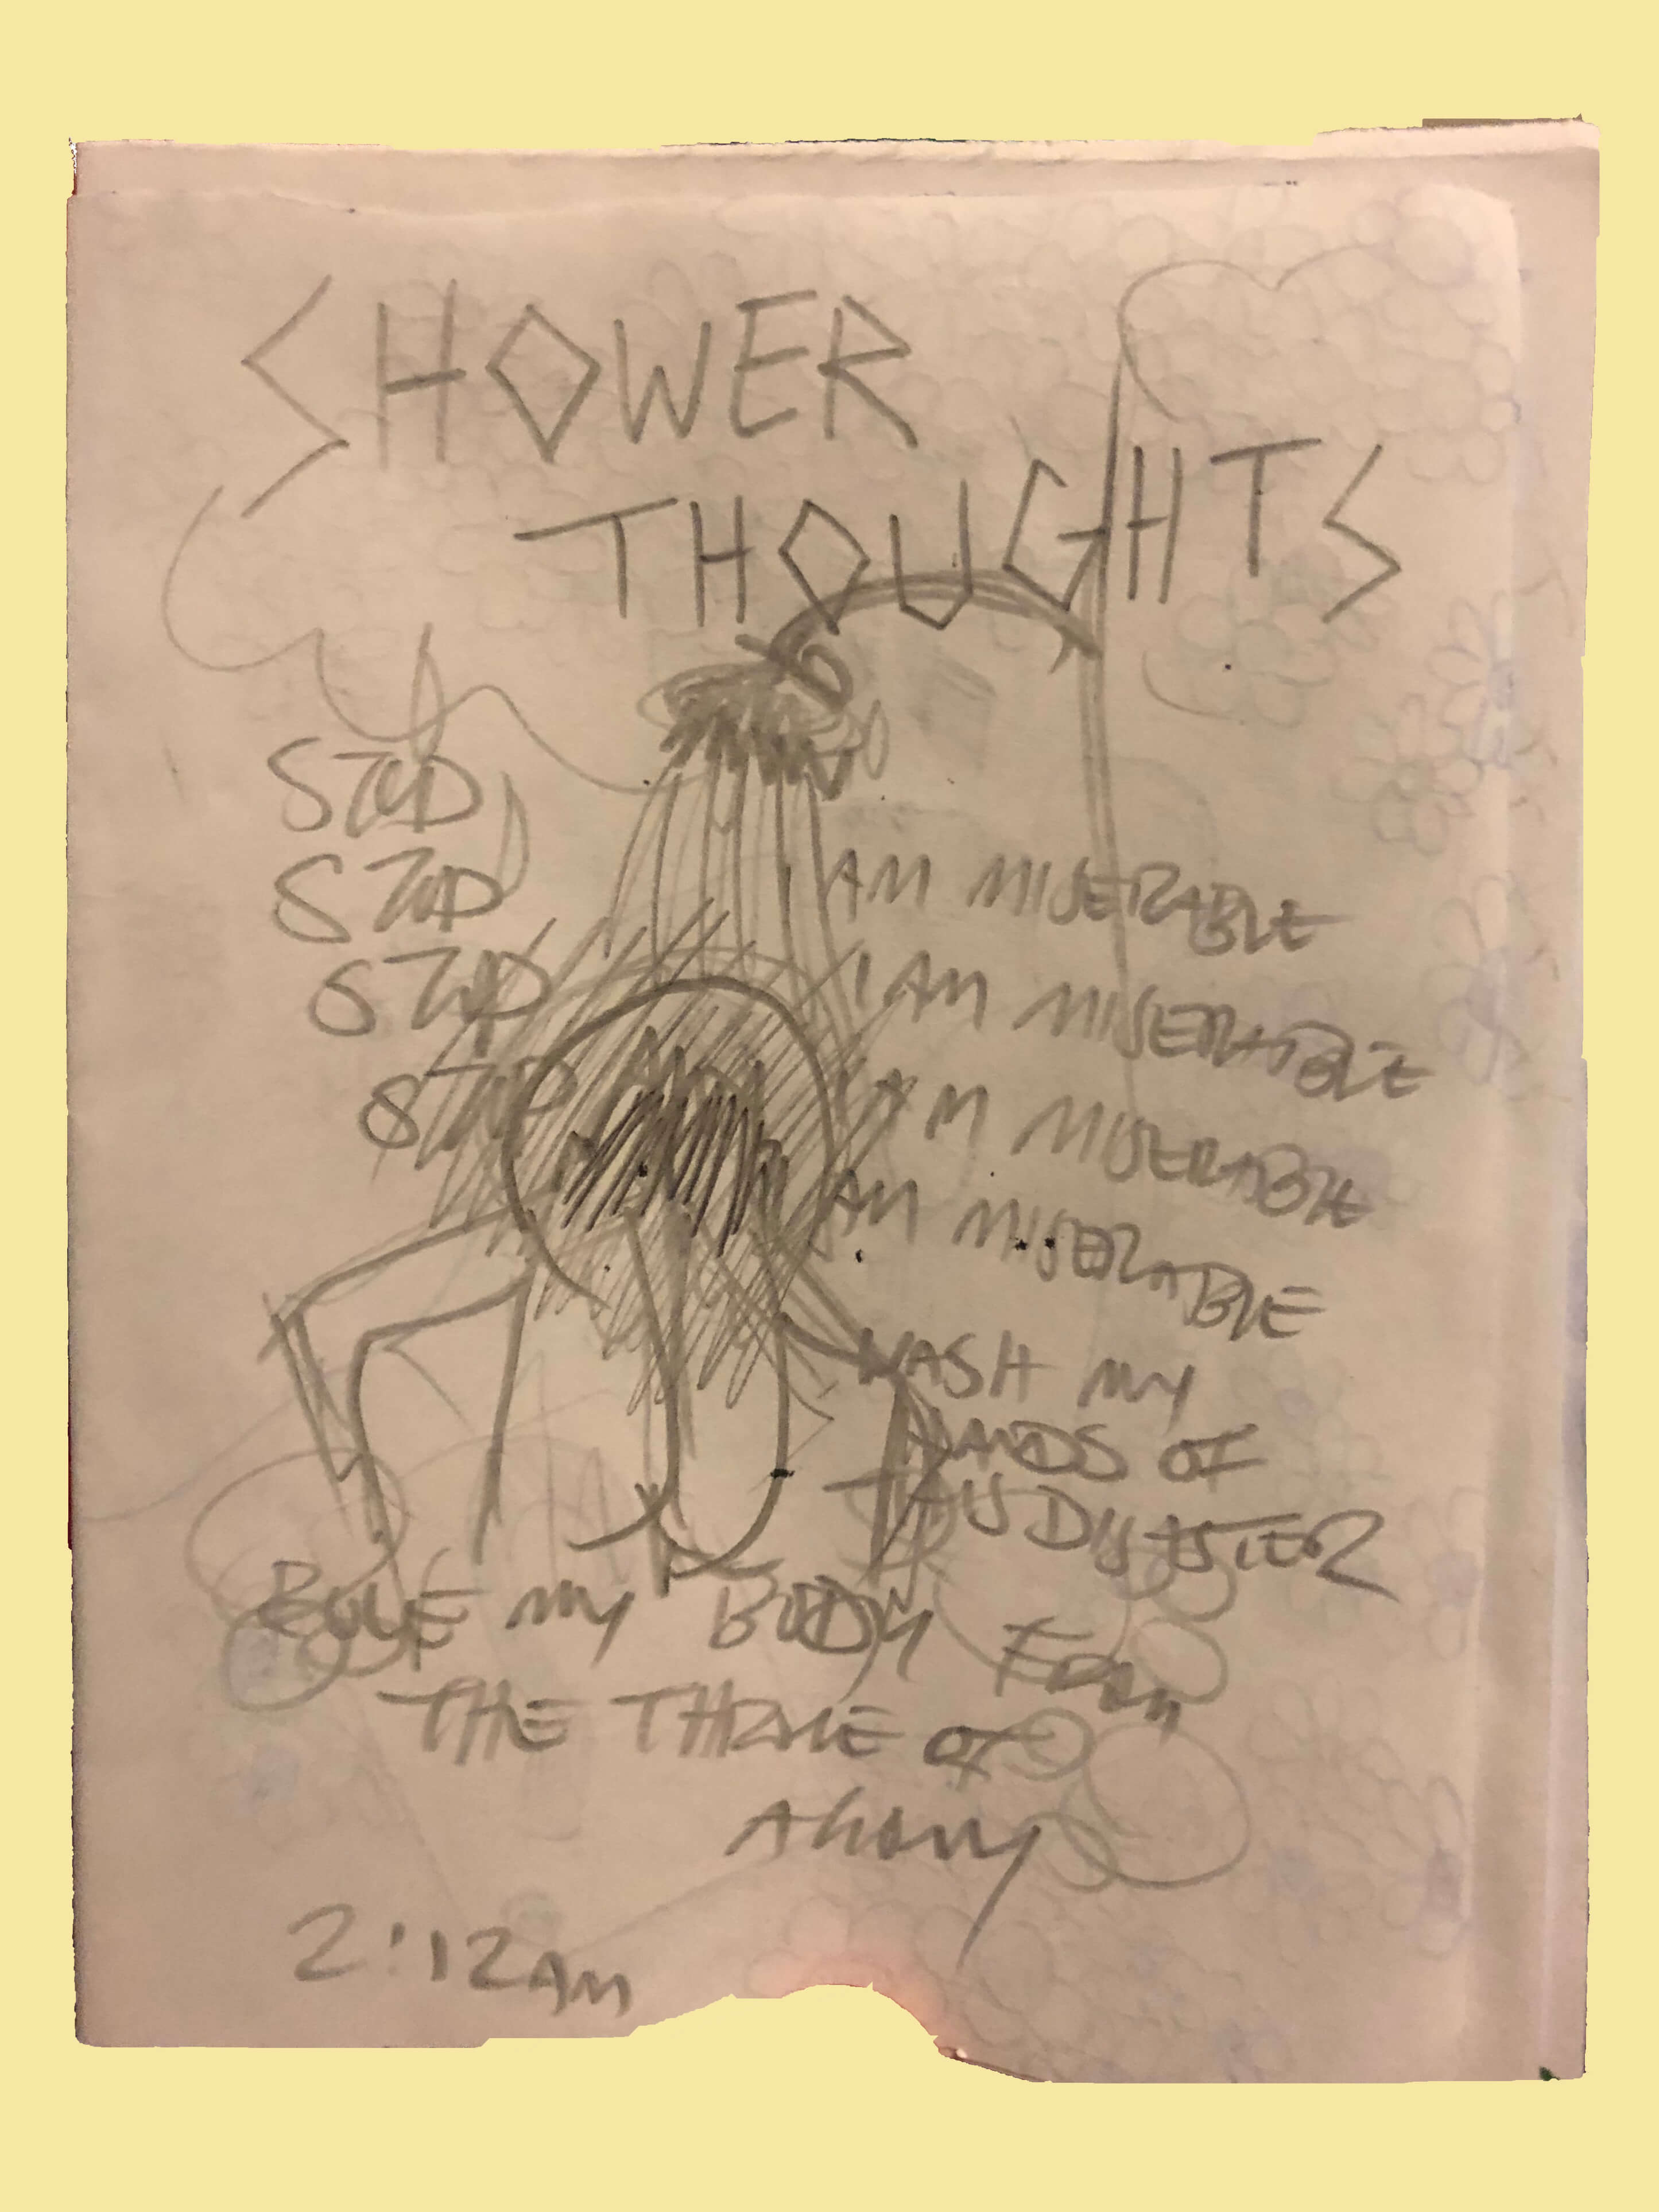 SHOWER
THOUGHTS
STOP
STOP
STOP
STOP
I AM MISERABLE
I AM MISERABLE
I AM MISERABLE
I AM MISERABLE
WASH MY
HANDS OF
THIS DISASTER
MY BODY FROM
THE THRONE OF
AGONY
2:12AM